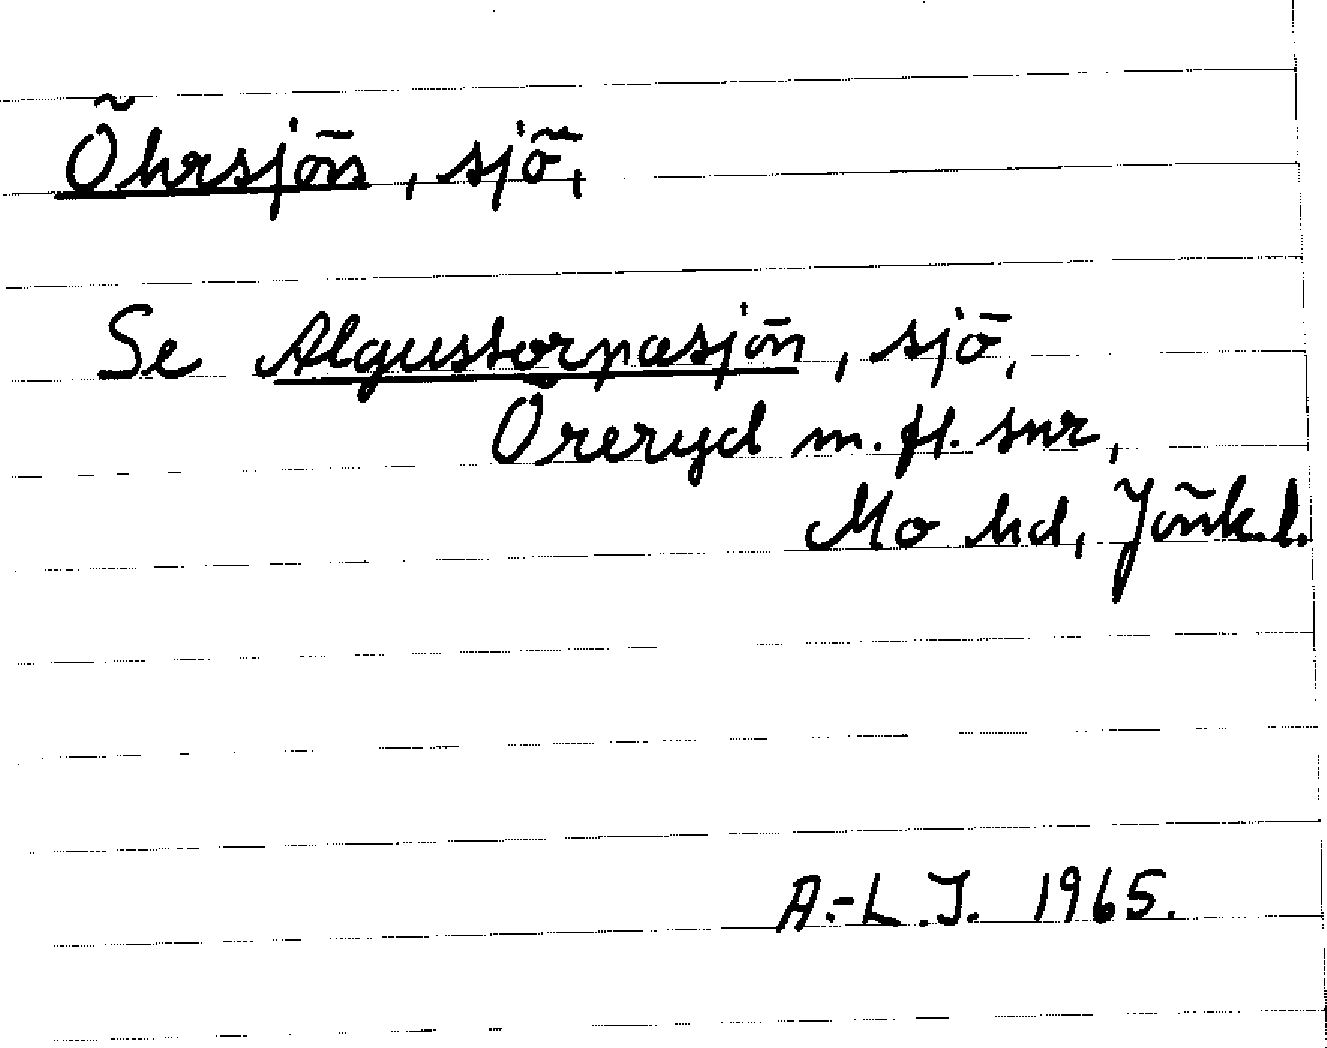 Öhrsjön, sjö,
Se Algustorpasjön, sjö,
Öreryd m. fl. snr,
Mo hd, Jönk. l.
A.-L. J. 1965.